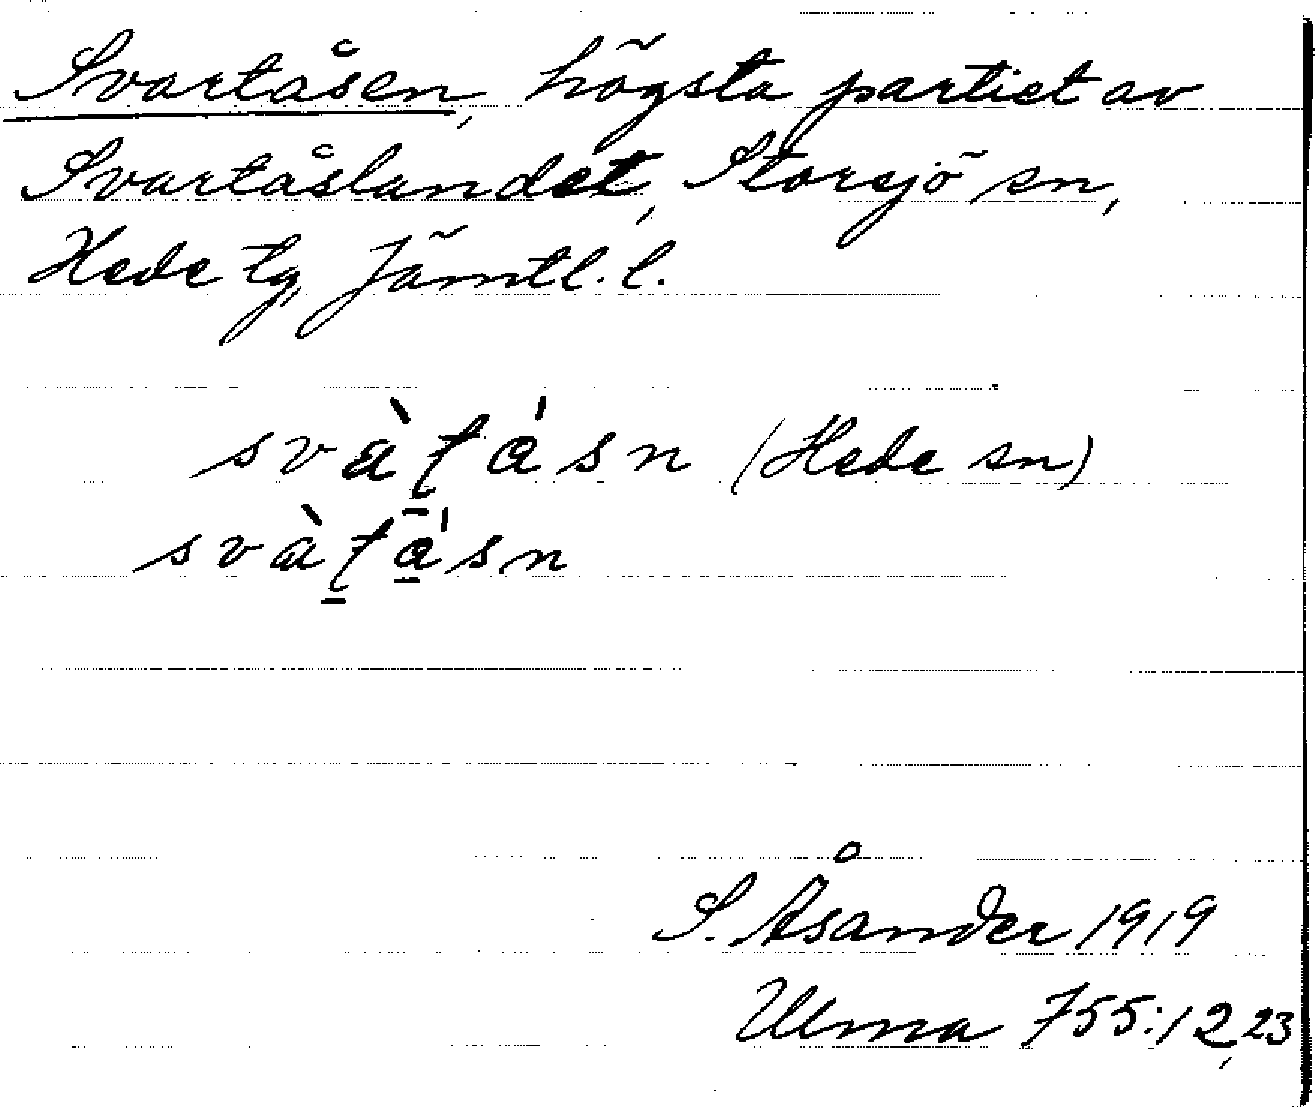 Svartåsen, högsta partiet av
Svartåslandet, Storsjö sn,
Hede tg, Jämtl. l.
svàʈá̱sn (Hede sn)
svàʈ̱á̱sn
S. Åsander 1919
Ulma 755:12,23